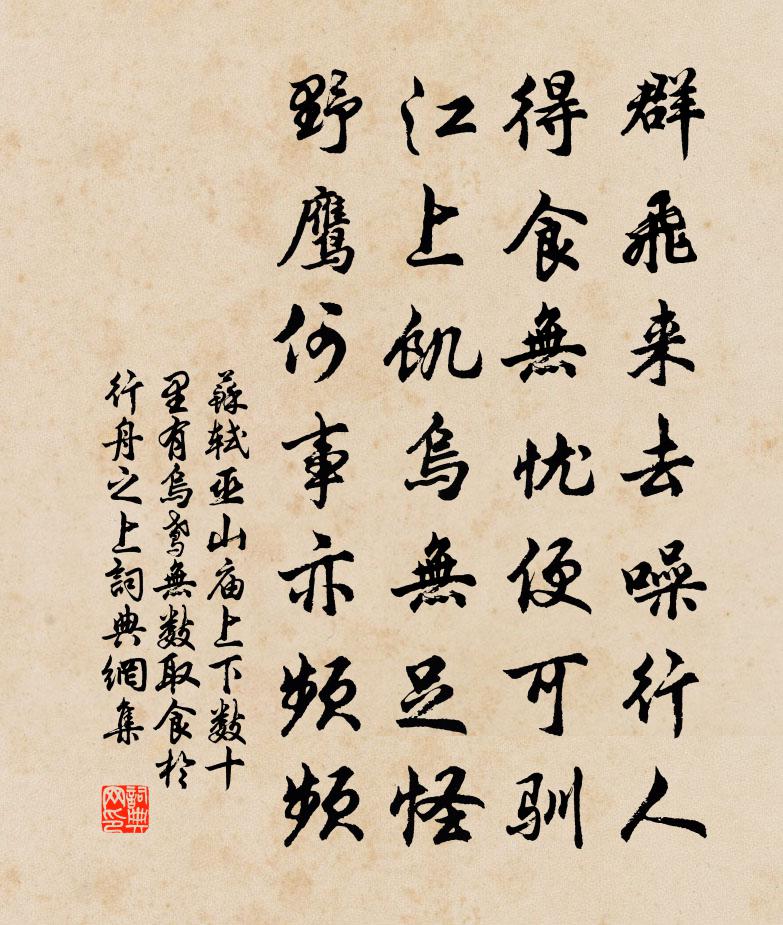 群飛来去噪行人
得食無忧便可馴
江上飢烏無足怪
野鹰何事亦頻頻
蘇軾巫山庙上下数十
里有烏鸢無数取食於
行舟之上詞典網集
詞典网印